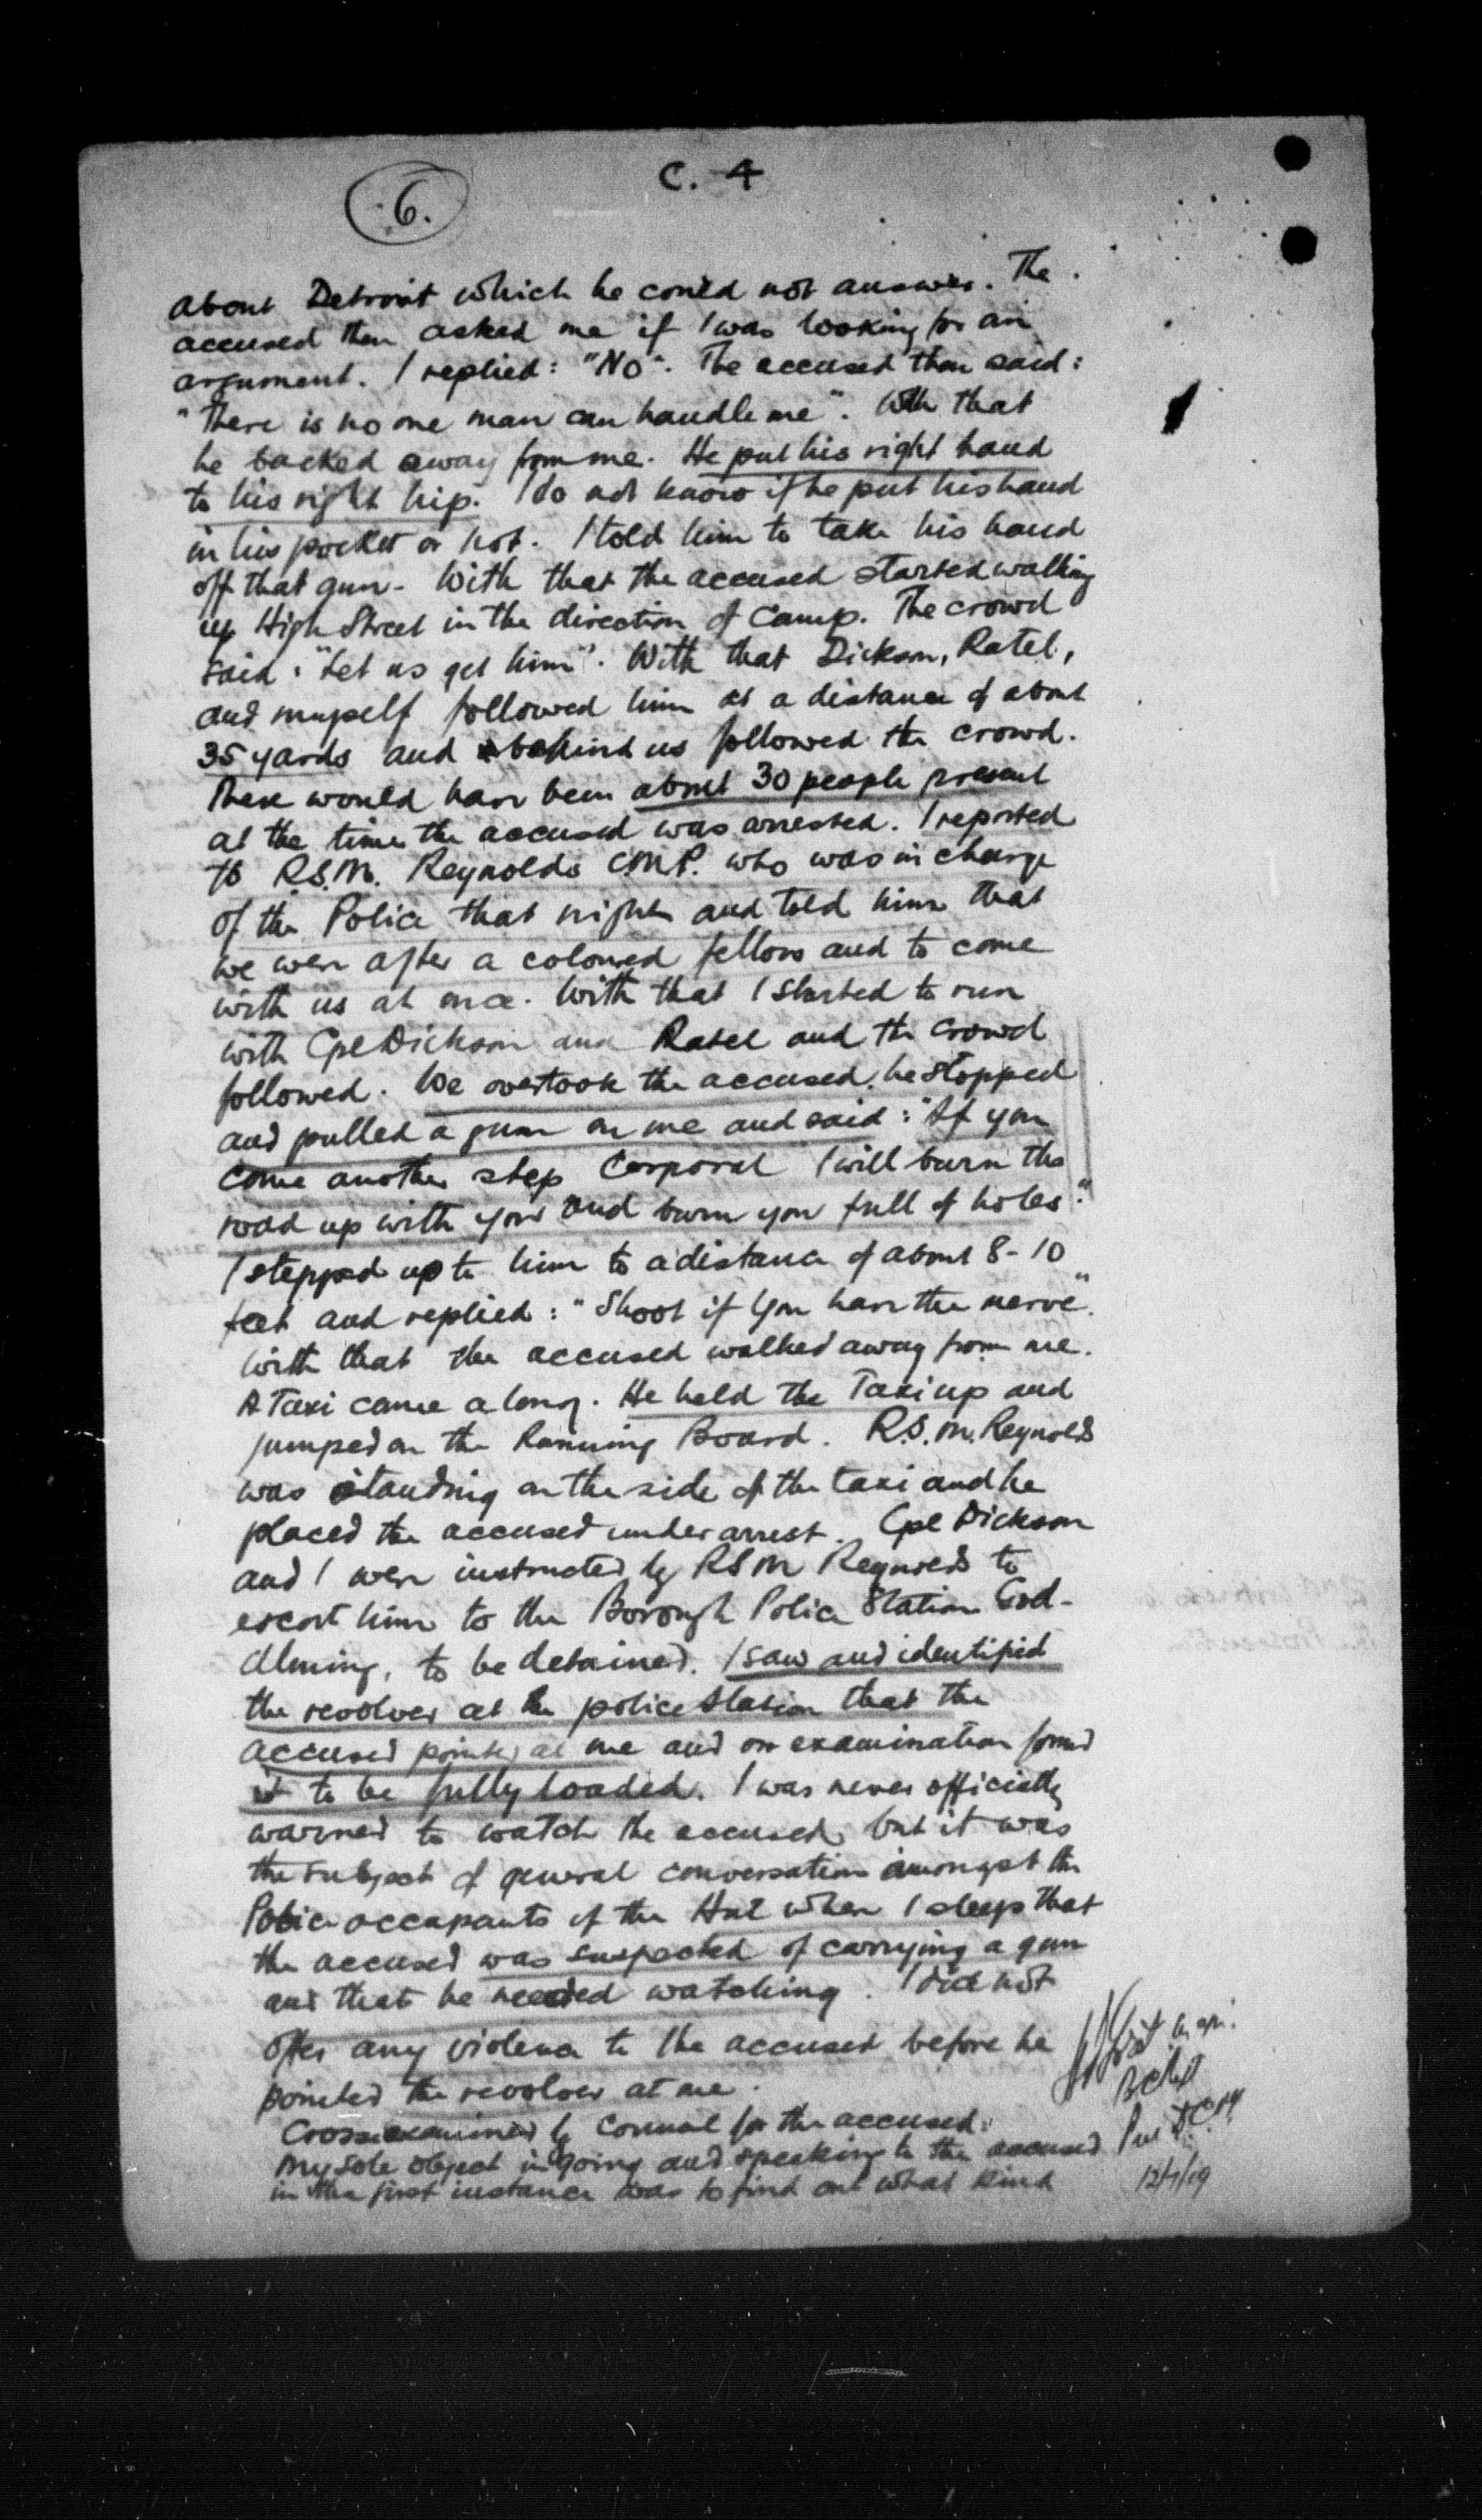 C. 4
6.
about Detroit which he could not answer. The
accused then asked me if I was looking for an
argument. I replied: "No". The accused then said:
"There is no one man can handle me". With that
he backed away from me. He put his right hand
to his right hip. I do not know if he put his hand
in his pocket or not. I told him to take his hand
off that gun. With that the accused started walking
up High Street in the direction of Camp. The crowd
said: "Let us get him". With that Dickson, Ratel,
and myself followed him at a distance of about
35 yards and behind us followed the crowd.
There would have been about 30 people present
at the time the accused was arrested. I reported
to R.S.M. Reynolds CMP. who was in charge
of the Police that night and told him that
we were after a coloured fellow and to come
with us at once. With that I started to run
with Cpl Dickson and Ratel and the crowd
followed. We overtook the accused. he stopped
and pulled a gun on me and said: "If you
come another step Corporal I will burn the
road up with you and burn you full of holes."
I stepped up to him to a distance of about 8-10
feet and replied: "Shoot if you have the nerve".
With that the accused walked away from me.
A Taxi came along. He held the Taxi up and
jumped on the Running Board. R.S.M. Reynolds
was standing on the side of the taxi and he
placed the accused under arrest. Cpl Dickson
and I were instructed by RSM Reynolds to
escort him to the Borough Police Station God-
alming, to be detained. I saw and identified
the revolver at the police station that the
accused pointed at me and on examination found
it to be fully loaded. I was never officially
warned to watch the accused, but it was
the subject of general conversation amongst the
Police occupants of the Hut where I sleep that
the accused was suspected of carrying a gun
and that he needed watching. I did not
offer any violence to the accused before he
pointed the revolver at me.
Cross examined by Counsel for the accused:
My sole object in going and speaking to the accused
in the first instance was to find out what kind
12/7/19